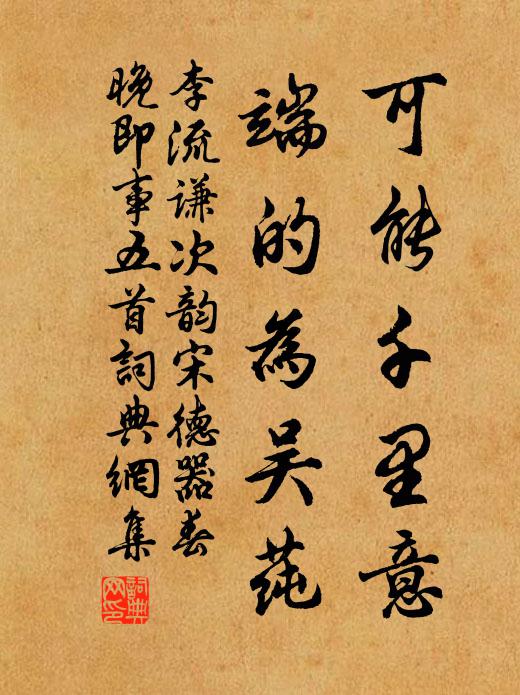 可能千里意
端的為吴蒓
李流谦次韵宋德器春
晚即事五首詞典網集
詞典網印